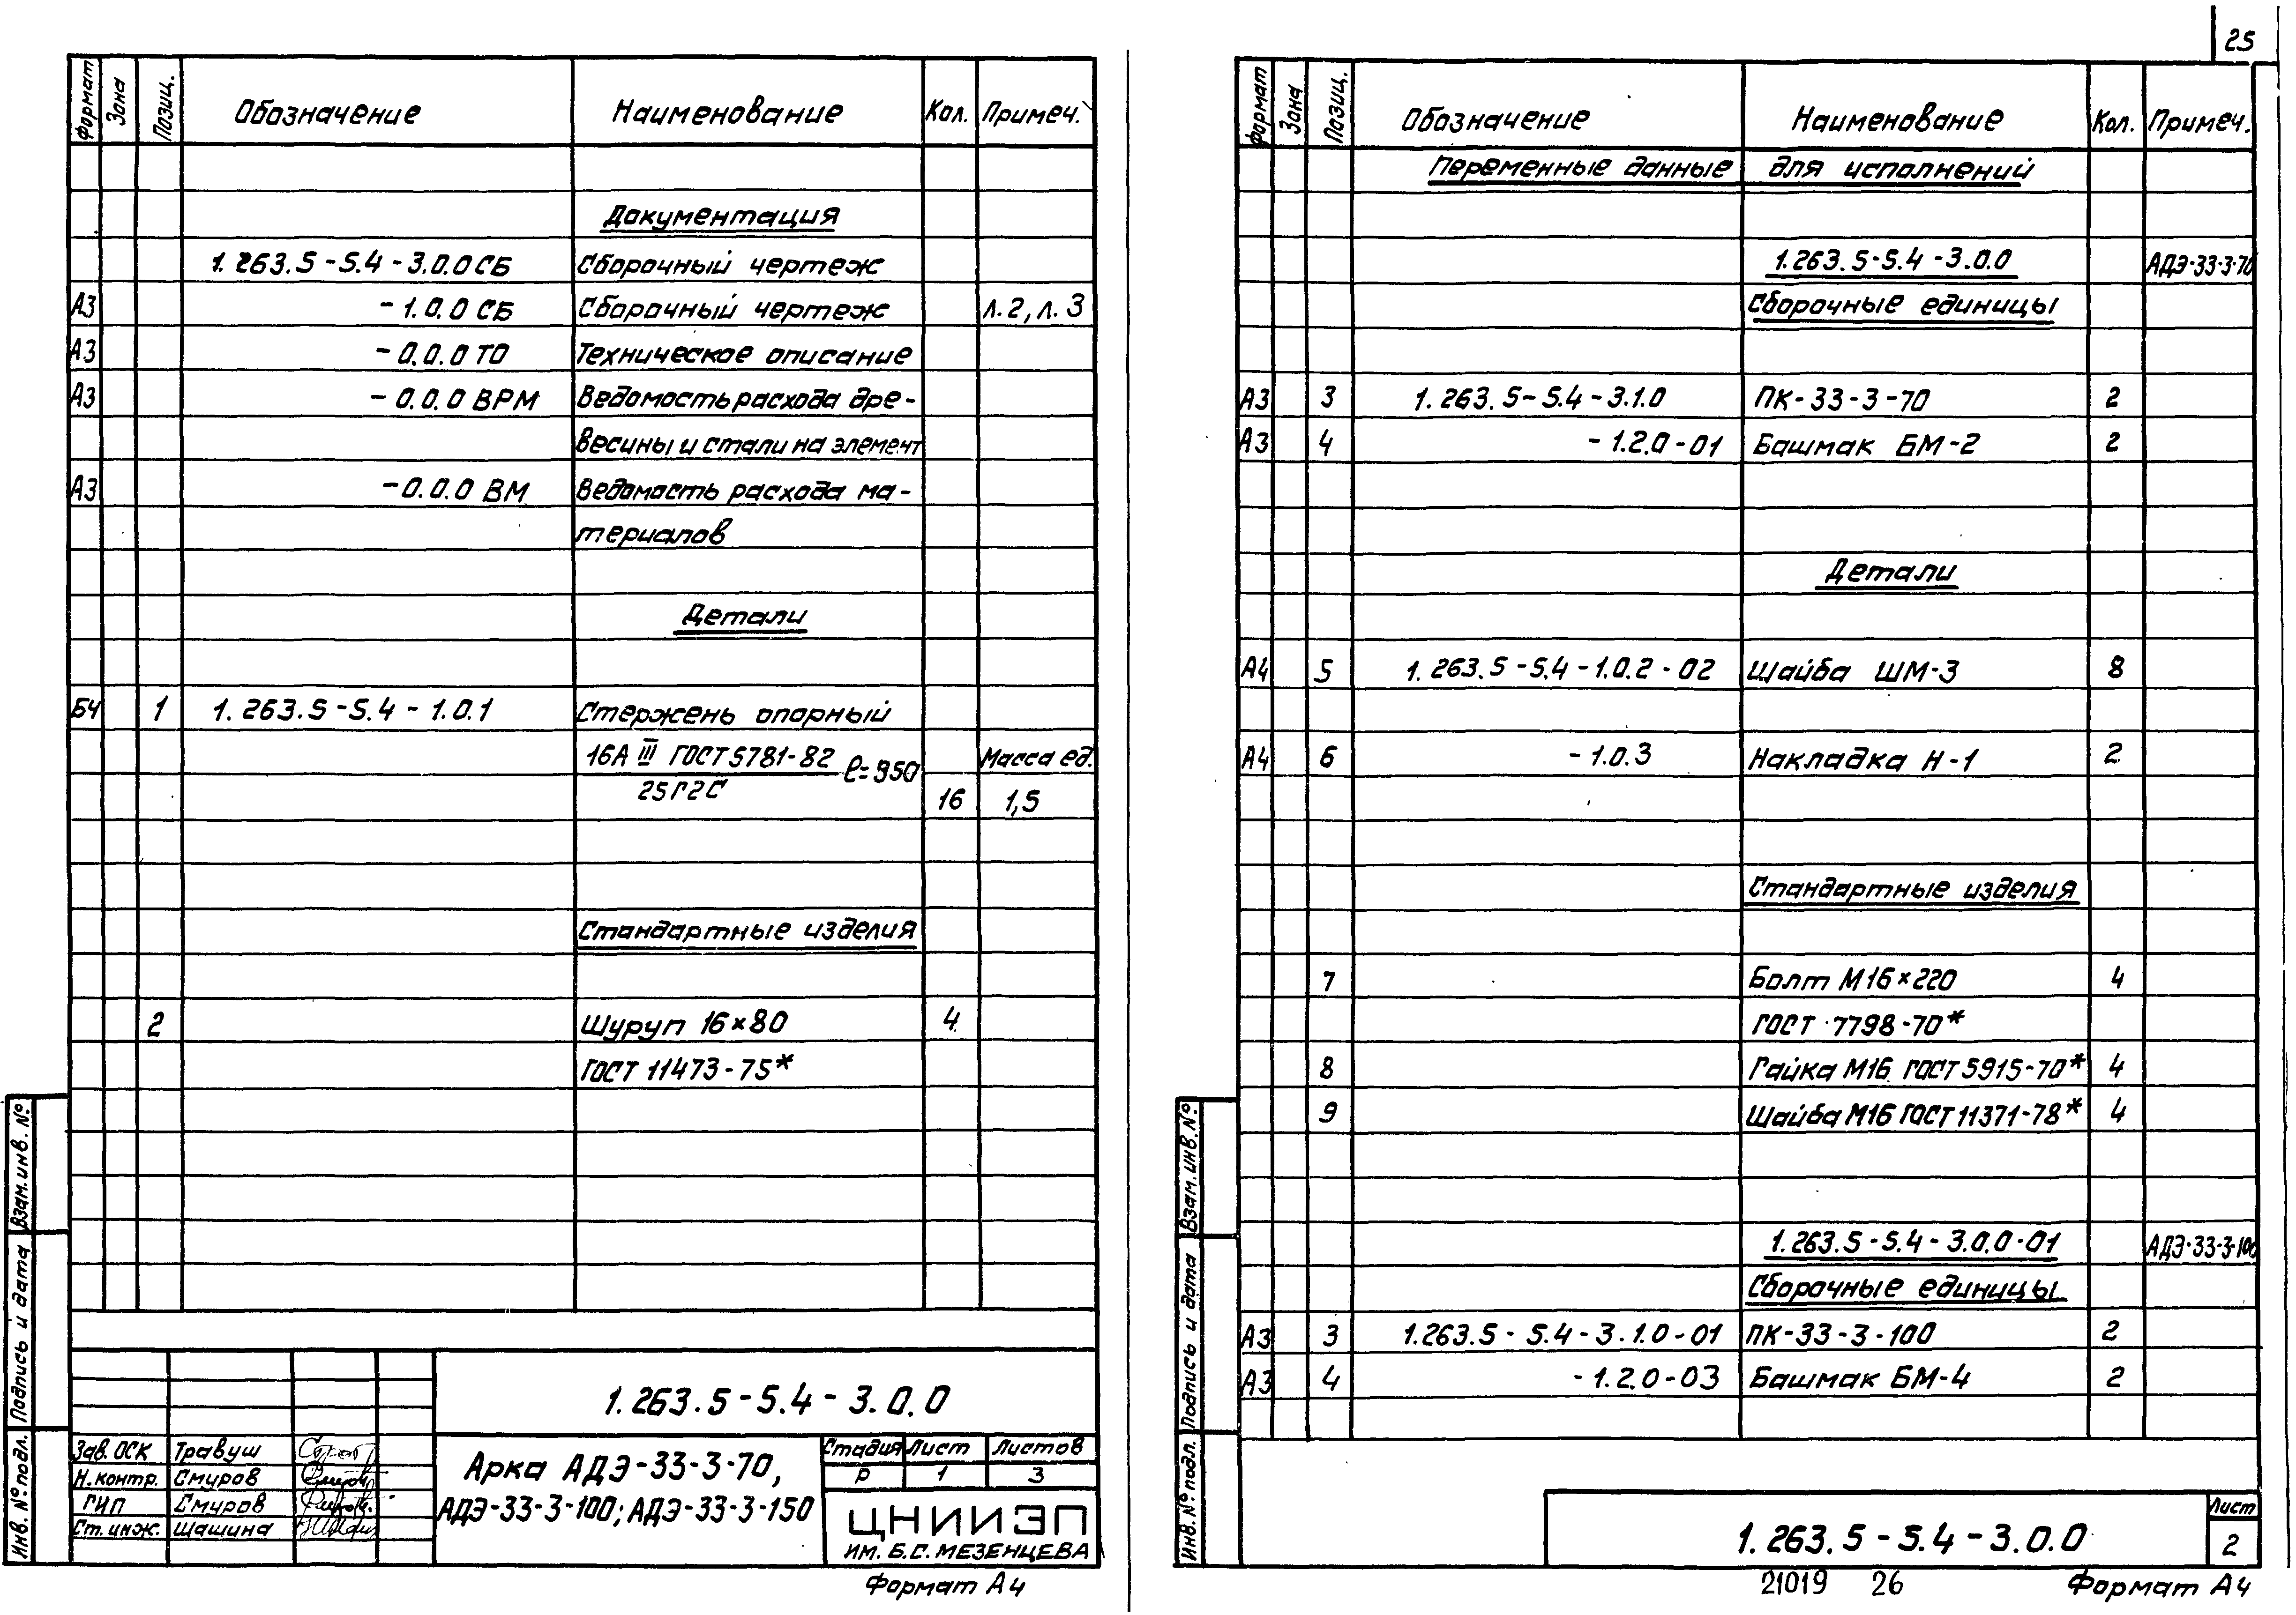 25
Формат Зона Позиц. Обозначение Наименование Кол. Примеч.
Документация
1.263.5-5.4-3.0.0 СБ Сборочный чертеж
А3 -1.0.0 СБ Сборочный чертеж л.2, л.3
А3 -0.0.0 ТО Техническое описание
А3 -0.0.0 ВРМ Ведомость расхода дре-
весины и стали на элемент
А3 -0.0.0 ВМ Ведомость расхода ма-
териалов
Детали
БЧ 1 1.263.5-5.4-1.0.1 Стержень опорный
16А III ГОСТ 5781-82 ℓ=950 Масса ед.
25Г2С 16 1,5
Стандартные изделия
2 Шуруп 16×80 4
ГОСТ 11473-75*
Взам. инв. №
Подпись и дата
Инв. № подл.
1.263.5-5.4-3.0.0
Зав. ОСК Травуш
Н. контр. Смуров
ГИП Смуров
Ст. инж. Шашина
Арка АДЭ-33-3-70,
АДЭ-33-3-100; АДЭ-33-3-150
Стадия Лист Листов
Р 1 3
ЦНИИЭП
ИМ. Б.С. МЕЗЕНЦЕВА
Формат А4
Формат Зона Позиц. Обозначение Наименование Кол. Примеч.
Переменные данные для исполнений
1.263.5-5.4-3.0.0 АДЭ-33-3-70
Сборочные единицы
А3 3 1.263.5-5.4-3.1.0 ПК-33-3-70 2
А3 4 -1.2.0-01 Башмак БМ-2 2
Детали
А4 5 1.263.5-5.4-1.0.2-02 Шайба ШМ-3 8
А4 6 -1.0.3 Накладка Н-1 2
Стандартные изделия
7 Болт М16×220 4
ГОСТ 7798-70*
8 Гайка М16 ГОСТ 5915-70* 4
9 Шайба М16 ГОСТ 11371-78* 4
1.263.5-5.4-3.0.0-01 АДЭ-33-3-100
Сборочные единицы
А3 3 1.263.5-5.4-3.1.0-01 ПК-33-3-100 2
А3 4 -1.2.0-03 Башмак БМ-4 2
Взам. инв. №
Подпись и дата
Инв. № подл.
1.263.5-5.4-3.0.0
Лист
2
21019 26
Формат А4